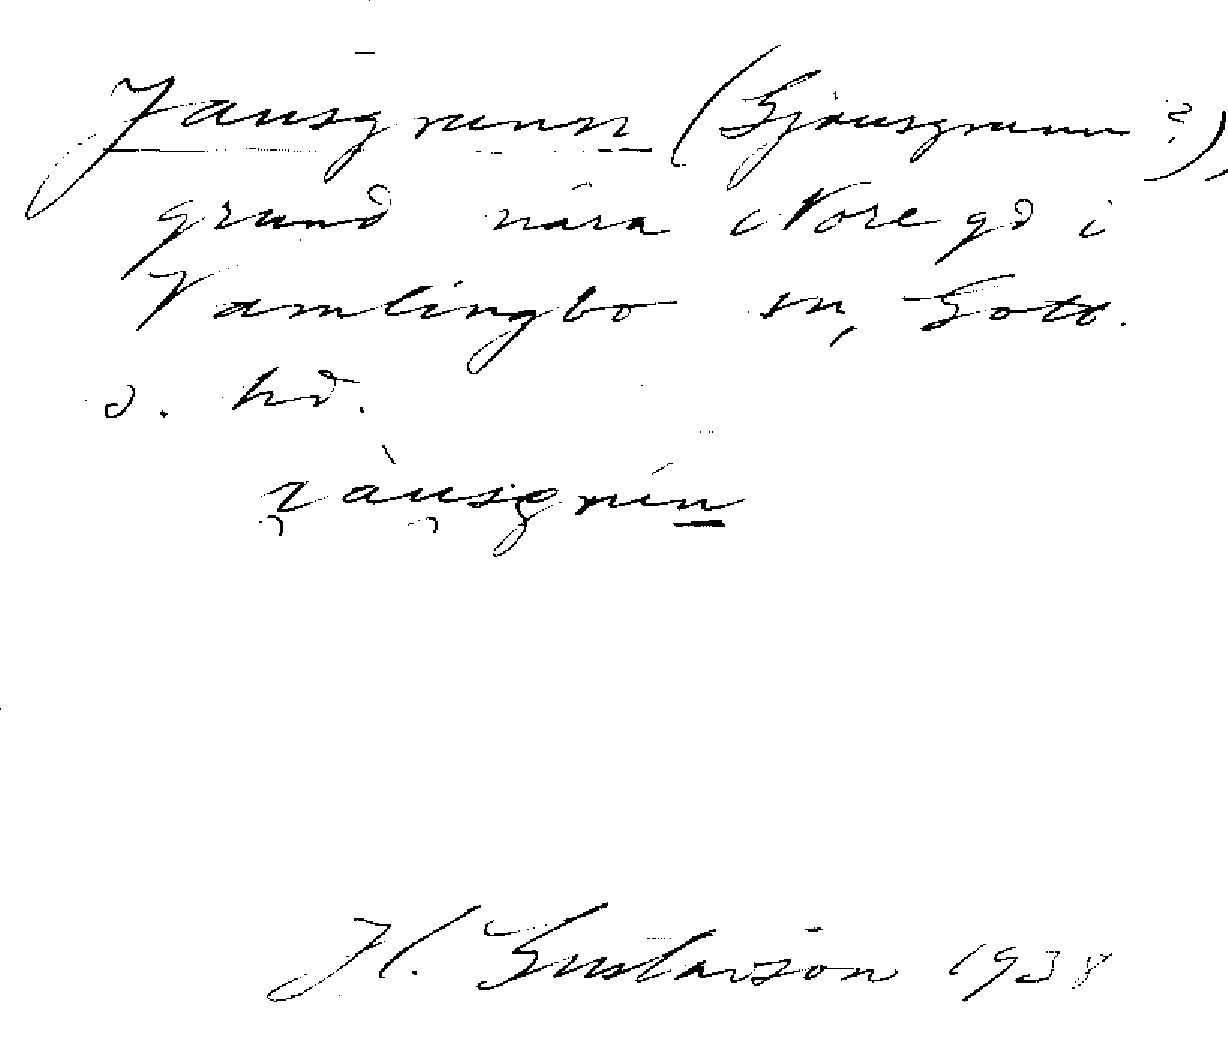 Jausgrunn (Gjausgrunn?),
grund nära Nore gd i
Vamlingbo sn, Gotl.
s. hd.
H. Gustavson 1938